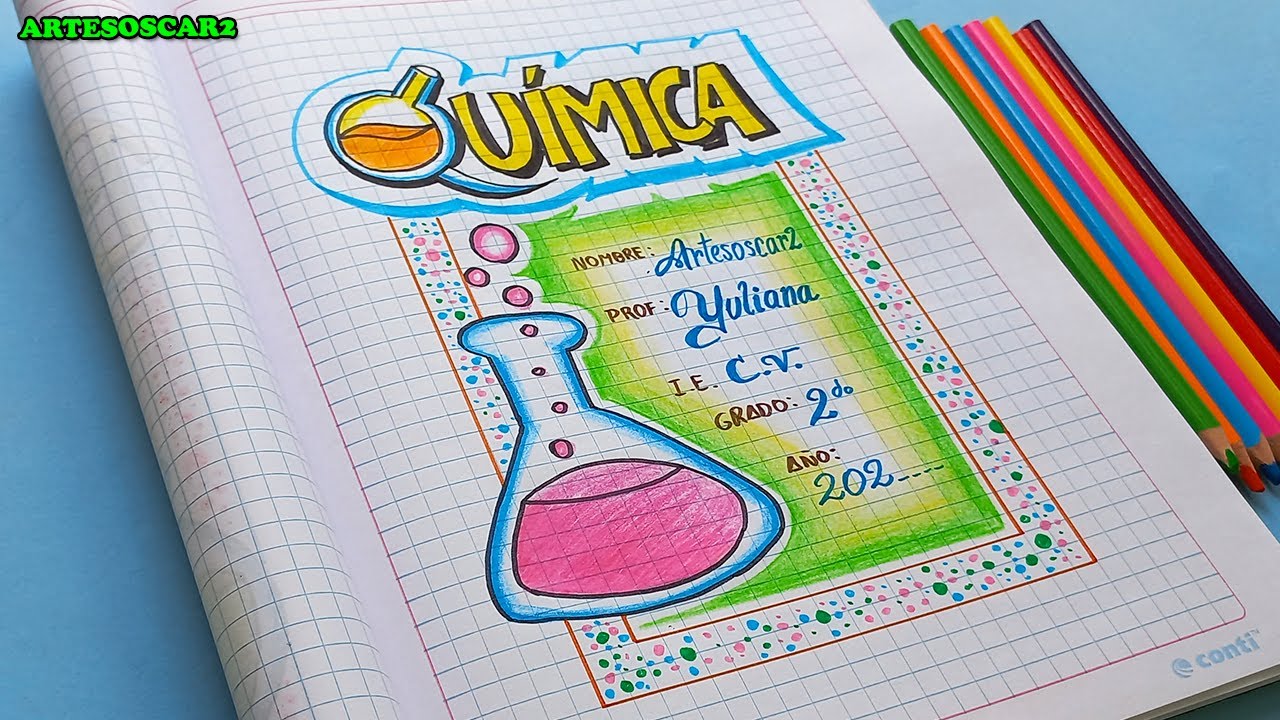 ARTESOSCAR2
QUÍMICA
NOMBRE: Artesoscar2
PROF: Yuliana
I.E. C.V.
GRADO: 2do
AÑO:
202----
conti